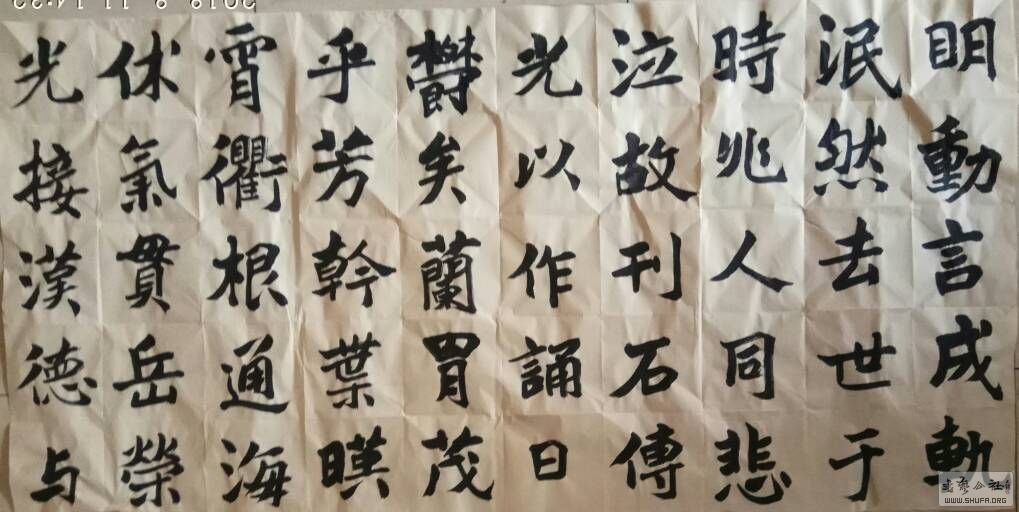 眀動言成軌
泯然去世于
時兆人同悲
泣故刊石傳
光以作誦曰
鬱矣蘭胃茂
乎芳幹葉暎
霄衢根通海
休氣貫岳榮
光接漢德与
WWW.SHUFA.ORG